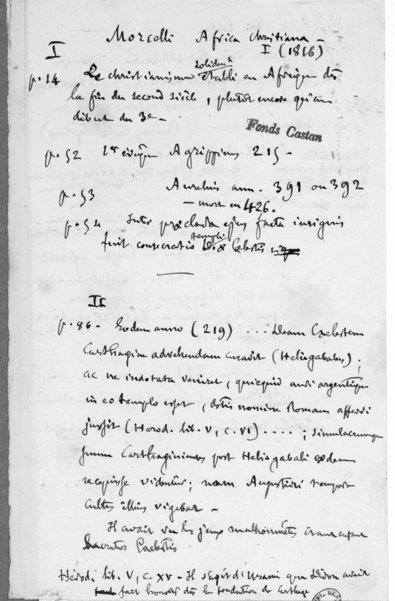 Morcelli Africa Christiana -
I I (1816)
p. 14 Le christianisme solidemt établi en Afrique dès
la fin du second siècle, plutôt encore qu'au
début du 3e -
Fonds Castan
p. 52 1er évêque Agrippinus 215 -
p. 53 Aurelius ann. 391 ou 392
- mort en 426.
p. 54 Inter præclara ejus facta insignis
fuit consecratio templi Deæ Cælestis
II
p. 86 - Eodem anno (219) .... Deam Cælestem
Carthagine advehendam curavit (Heliogabalus) ;
ac ne indotata veniret, quicquid auri argentique
in eo templo esset, dotis nomine Romam afferri
jussit (Herod. lib. V, c. VI) .... ; simulacrumque
suum Carthaginienses post Heliogabali cædem
recepisse videntur ; nam Augustini tempore
cultus illius vigebat -
Il avait vu les jeux malhonnêtes
Cælestis -
Hérod. lib. V, c. XV - Il s'agit d'Urania que Didon avait
fait honorer dès la fondation de Carthage